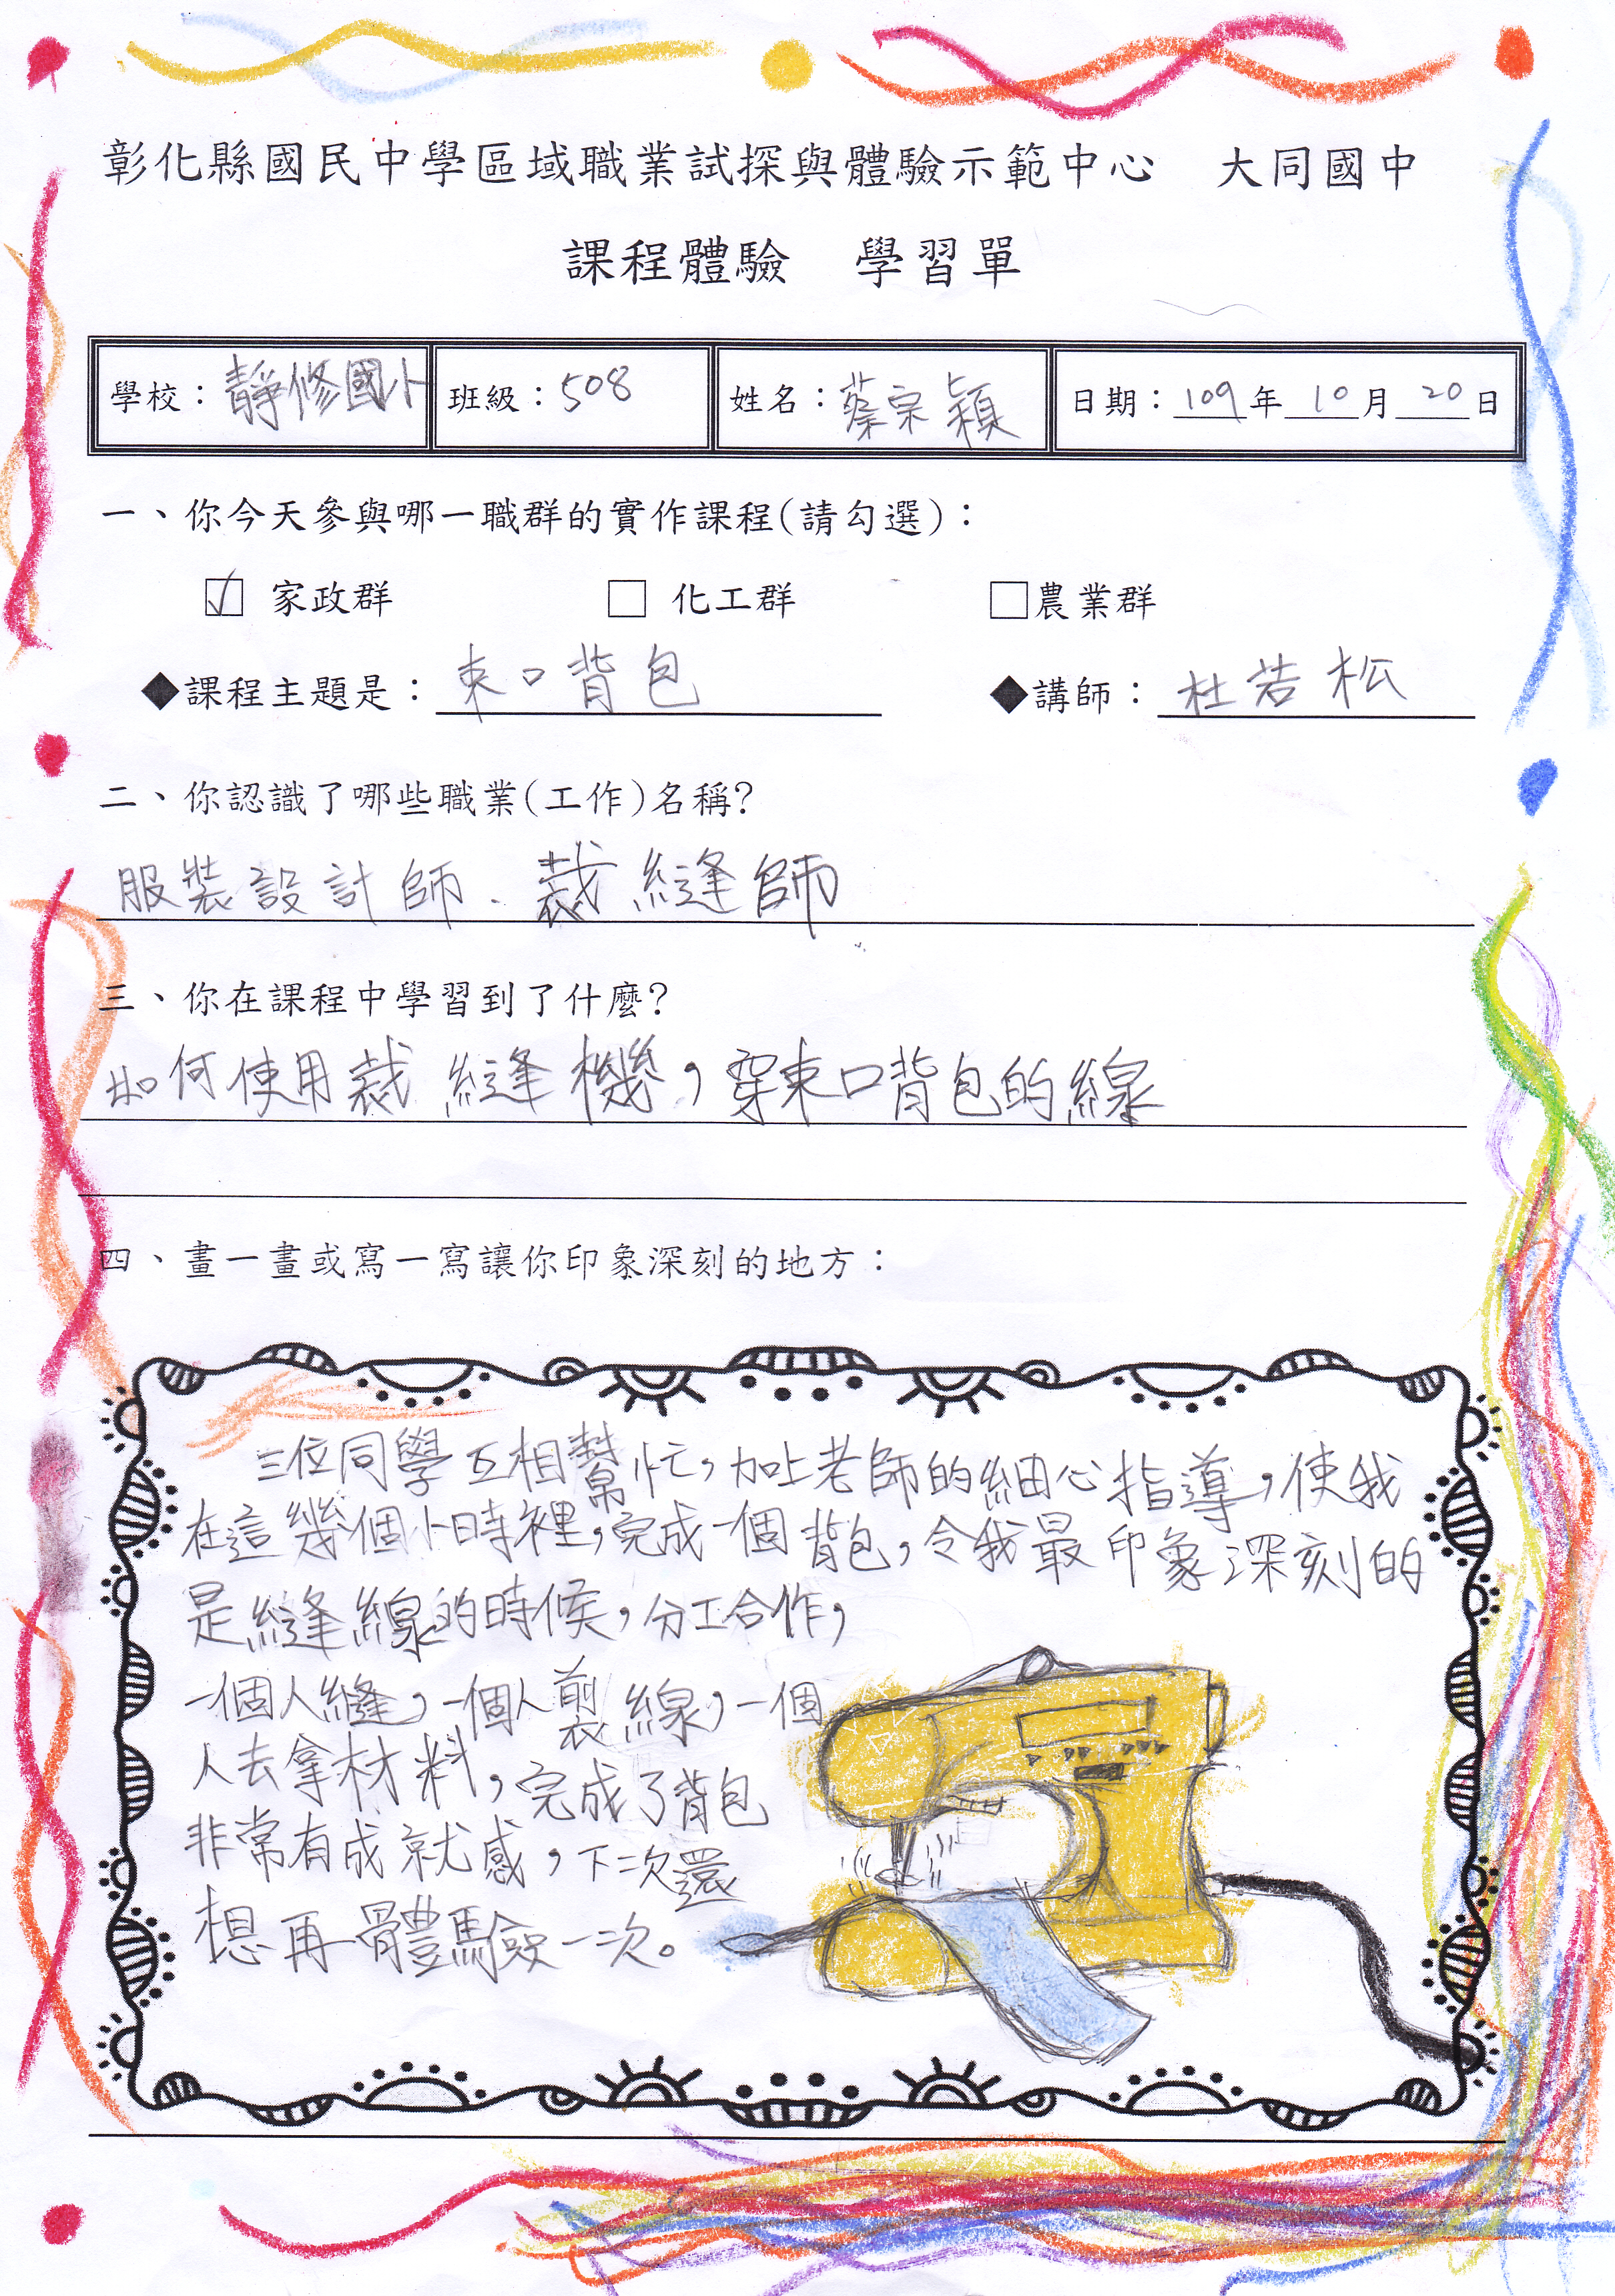 彰化縣國民中學區域職業試探與體驗示範中心 大同國中
課程體驗 學習單
學校：靜修國小 班級：508 姓名：蔡宗穎 日期：109年10月20日
一、你今天參與哪一職群的實作課程(請勾選)：
☑ 家政群 □ 化工群 □農業群
◆課程主題是：束口背包 ◆講師：杜若松
二、你認識了哪些職業(工作)名稱?
服裝設計師、裁縫師
三、你在課程中學習到了什麼?
如何使用裁縫機，穿束口背包的線
四、畫一畫或寫一寫讓你印象深刻的地方：
三位同學互相幫忙，加上老師的細心指導，使我
在這幾個小時裡，完成一個背包，令我最印象深刻的
是縫線的時候，分工合作，
一個人縫，一個人剪線，一個
人去拿材料，完成了背包
非常有成就感，下次還
想再體驗一次。